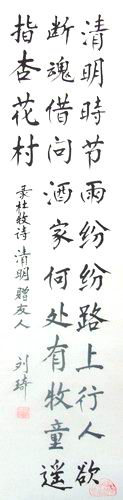 清明時节雨纷纷路上行人欲
断魂借问酒家何处有牧童遥
指杏花村
录杜牧诗清明赠友人
列琦